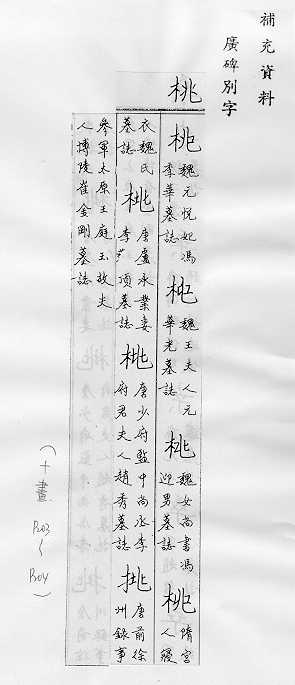 補充資料
廣碑別字
桃
桃 魏元悅妃馮
季華墓誌
桃 魏王夫人元
華光墓誌
桃 魏女尚書馮
迎男墓誌
桃 隋宮
人寢
衣魏氏
墓誌
桃 唐盧承業妻
李 項墓誌
桃 唐少府監中尚丞李
府君夫人趙秀墓誌
桃 唐前徐
州錄事
參軍太原王庭玉故夫
人博陵崔金剛墓誌
(十畫
P203
~
B04
)